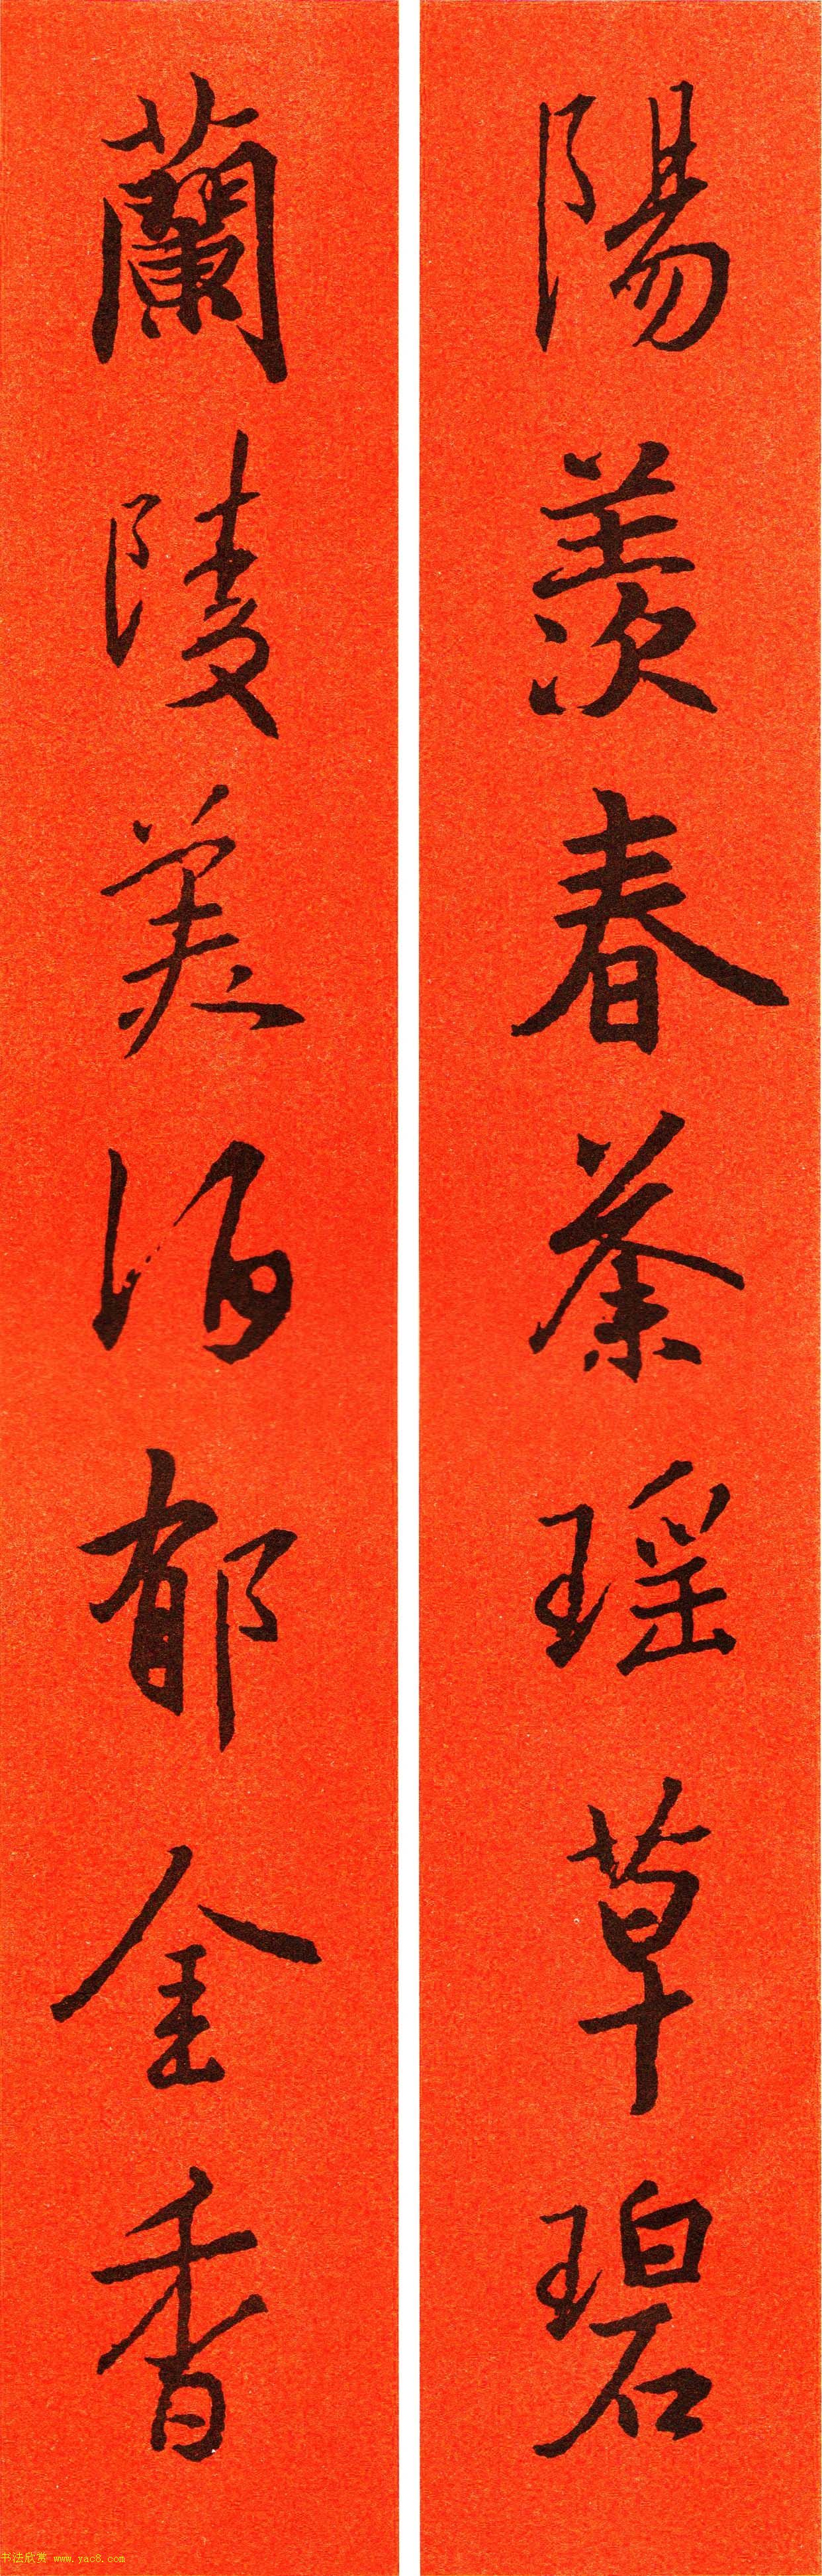 陽羨春茶瑶草碧
蘭陵美酒郁金香
书法欣赏 www.yac8.com